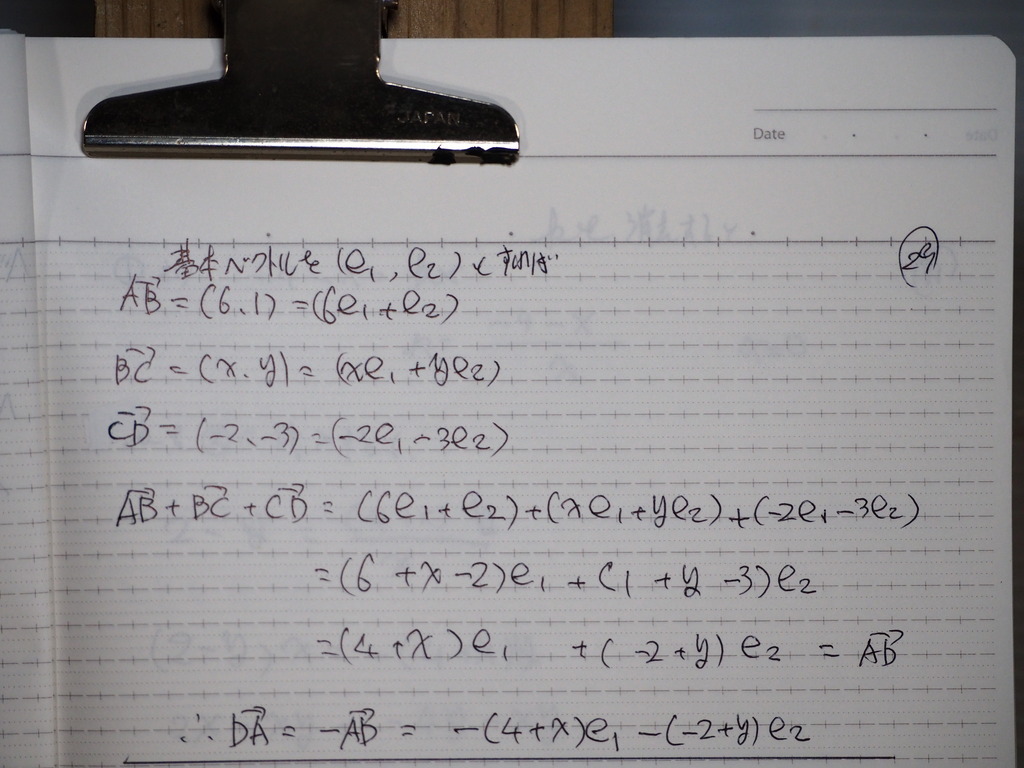 JAPAN
Date
基本ベクトルを (e₁, e₂) とすれば
29
→AB = (6、1) = (6e₁+e₂)
→BC = (x、y) = (xe₁+ye₂)
→CD = (-2、-3) = (-2e₁-3e₂)
→AB+→BC+→CD = (6e₁+e₂)+(xe₁+ye₂)+(-2e₁-3e₂)
=(6+x-2)e₁+(1+y-3)e₂
=(4+x)e₁+(-2+y)e₂ = →AB
∴ →DA = -→AB = -(4+x)e₁-(-2+y)e₂